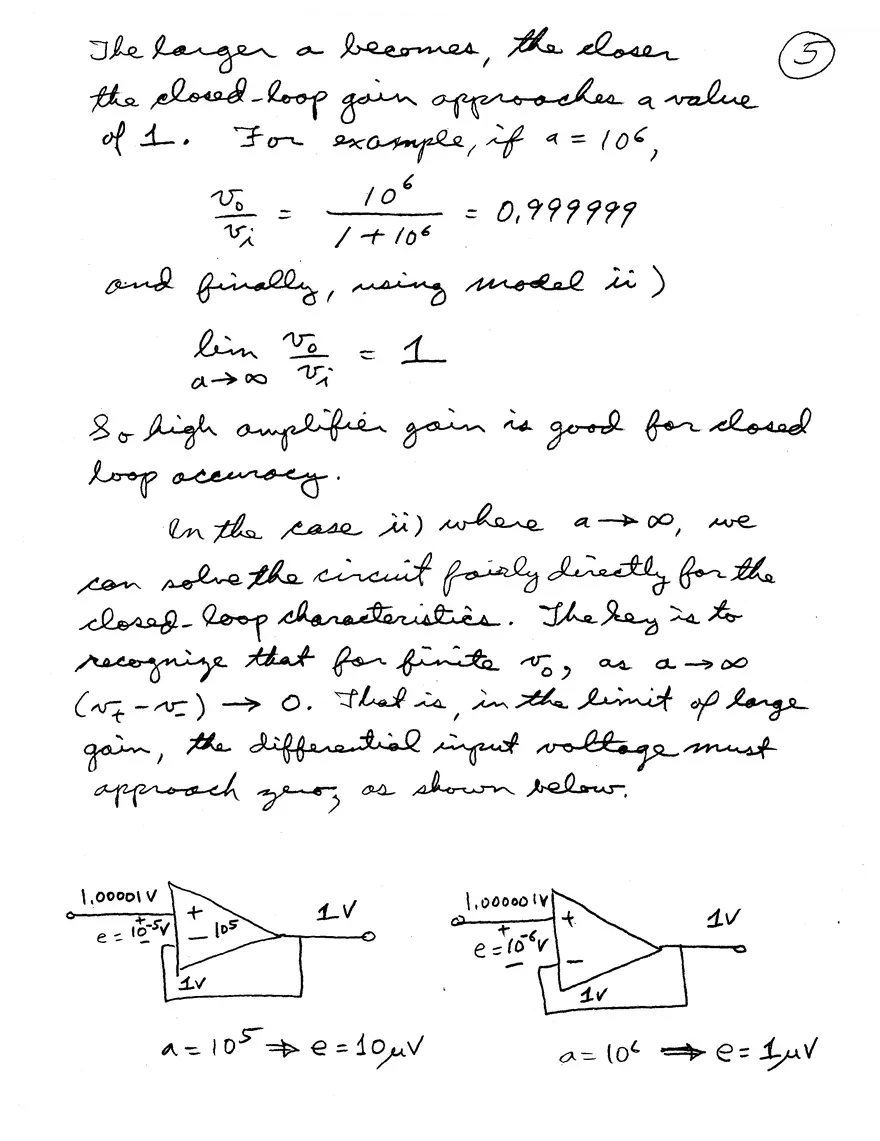 The larger a becomes, the closer
5
the closed-loop gain approaches a value
of 1. For example, if a = 10⁶,
v₀/vᵢ = 10⁶/(1 + 10⁶) = 0.999999
and finally, using model ii)
lim a→∞ v₀/vᵢ = 1
So high amplifier gain is good for closed
loop accuracy.
In the case ii) where a → ∞, we
can solve the circuit fairly directly for the
closed-loop characteristics. The key is to
recognize that for finite v₀, as a → ∞
(v₊ - v₋) → 0. That is, in the limit of large
gain, the differential input voltage must
approach zero, as shown below.
1.00001V
+
1V
+
e = 10⁻⁵V
-
10⁵
-
1V
a = 10⁵ ⇒ e = 10μV
1.000001V
+
1V
+
e = 10⁻⁶V
-
-
1V
a = 10⁶ ⇒ e = 1μV